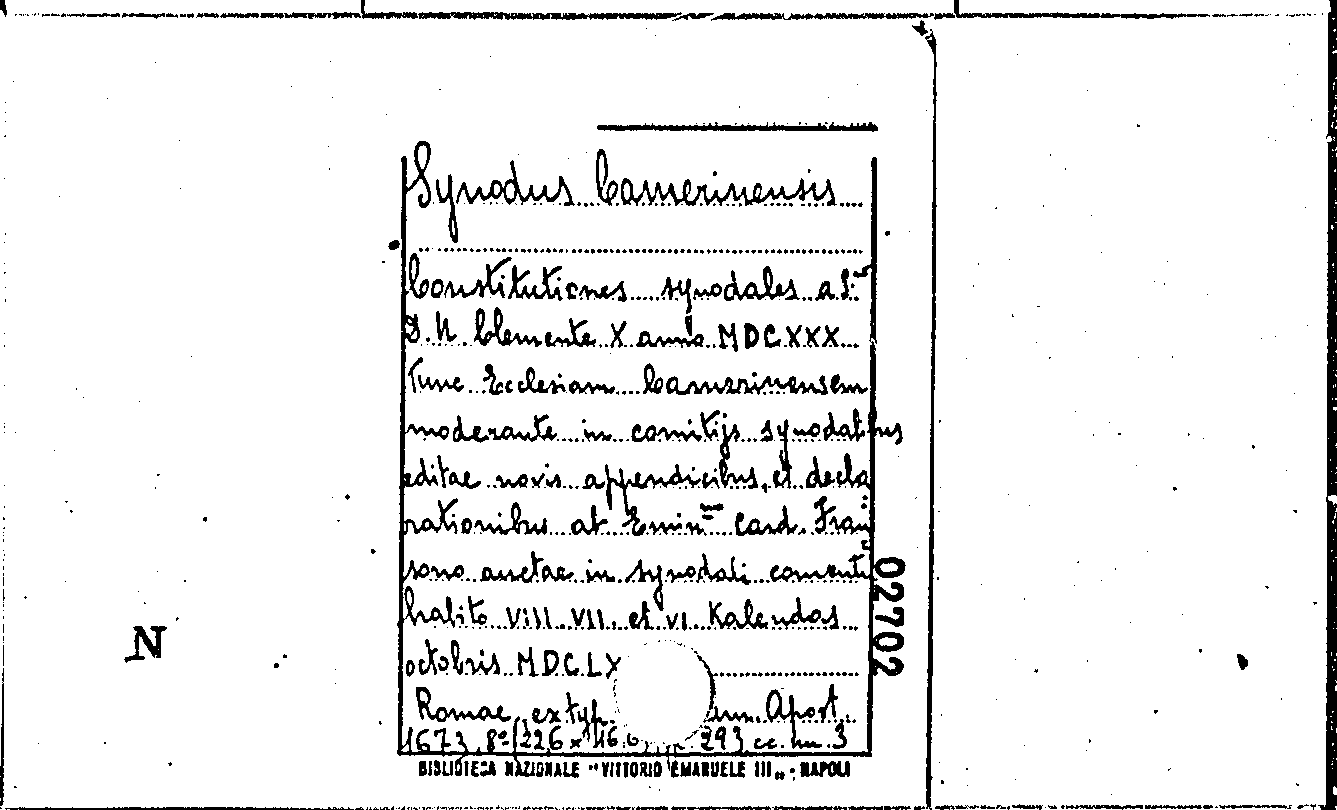 Synodus Camerinensis
Constitutiones synodales a S.mo
D. N. Clemente X anno MDCXXX
tunc Ecclesiam Camerinensem
moderante in comitijs synodalibus
editae novis appendicibus, et decla
rationibus ab Emin.mo Card. Fran
sono auctae in synodali conventu
habito VIII. VII. et VI Kalendas
octobris MDCLX
Romae, ex typ. Apost.
1673. 8° (226 x 293 cc. nn. 3
BIBLIOTECA NAZIONALE "VITTORIO EMANUELE III" - NAPOLI
02702
N